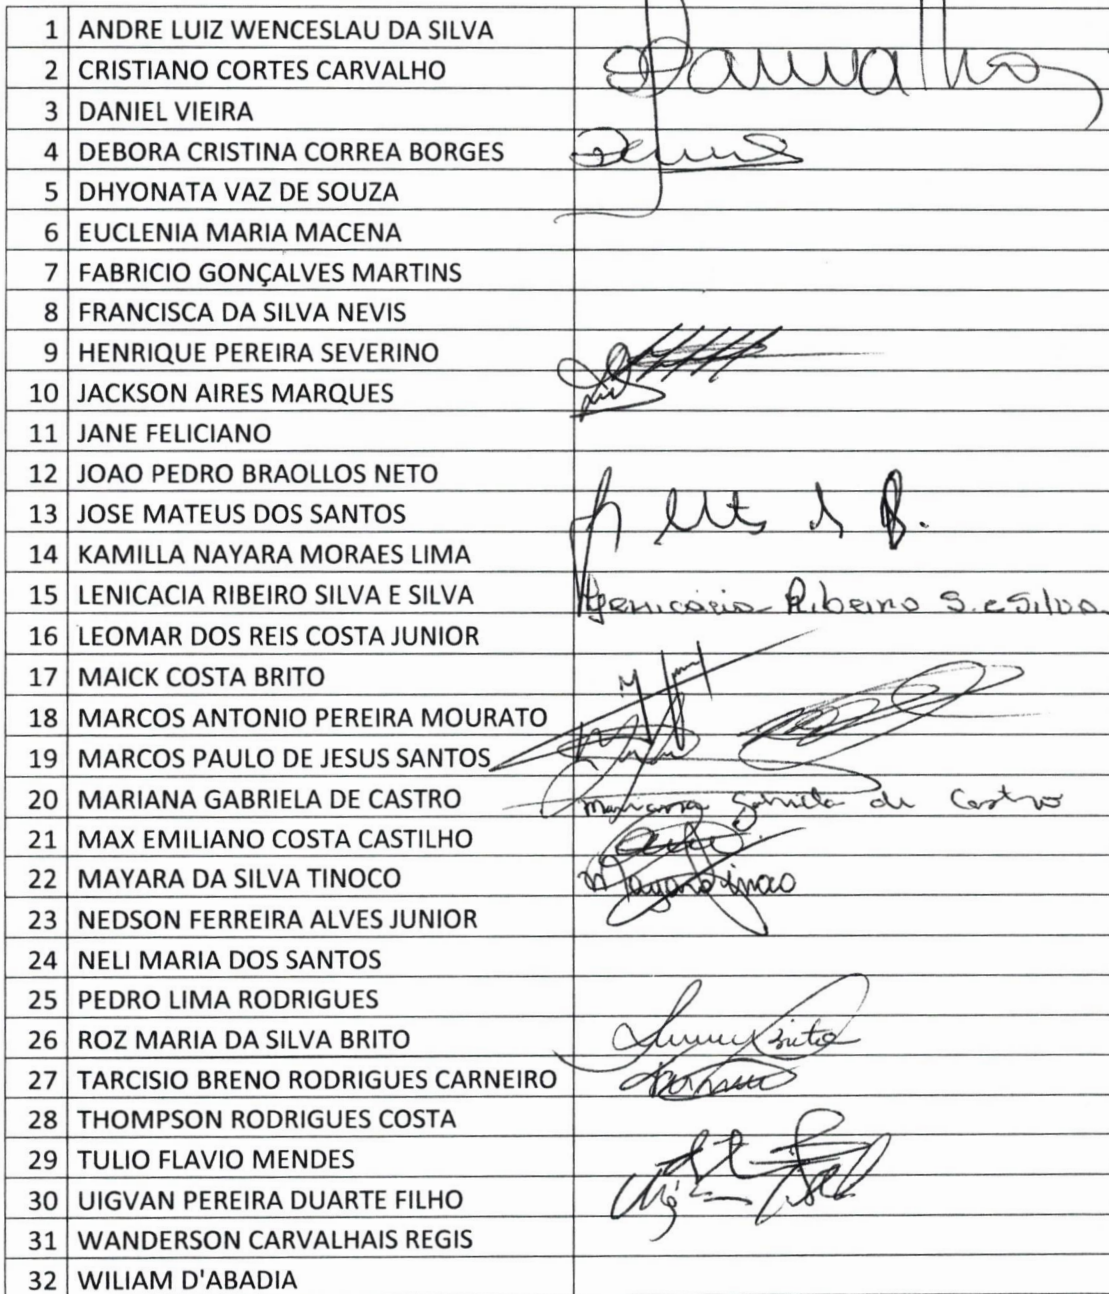 1 ANDRE LUIZ WENCESLAU DA SILVA
2 CRISTIANO CORTES CARVALHO Carvalho
3 DANIEL VIEIRA
4 DEBORA CRISTINA CORREA BORGES
5 DHYONATA VAZ DE SOUZA
6 EUCLENIA MARIA MACENA
7 FABRICIO GONÇALVES MARTINS
8 FRANCISCA DA SILVA NEVIS
9 HENRIQUE PEREIRA SEVERINO
10 JACKSON AIRES MARQUES
11 JANE FELICIANO
12 JOAO PEDRO BRAOLLOS NETO
13 JOSE MATEUS DOS SANTOS
14 KAMILLA NAYARA MORAES LIMA
15 LENICACIA RIBEIRO SILVA E SILVA Lenicácia Ribeiro S. e Silva
16 LEOMAR DOS REIS COSTA JUNIOR
17 MAICK COSTA BRITO
18 MARCOS ANTONIO PEREIRA MOURATO
19 MARCOS PAULO DE JESUS SANTOS
20 MARIANA GABRIELA DE CASTRO Mariana Gabriela de Castro
21 MAX EMILIANO COSTA CASTILHO
22 MAYARA DA SILVA TINOCO Mayara Tinoco
23 NEDSON FERREIRA ALVES JUNIOR
24 NELI MARIA DOS SANTOS
25 PEDRO LIMA RODRIGUES
26 ROZ MARIA DA SILVA BRITO Brito
27 TARCISIO BRENO RODRIGUES CARNEIRO
28 THOMPSON RODRIGUES COSTA
29 TULIO FLAVIO MENDES
30 UIGVAN PEREIRA DUARTE FILHO
31 WANDERSON CARVALHAIS REGIS
32 WILIAM D'ABADIA